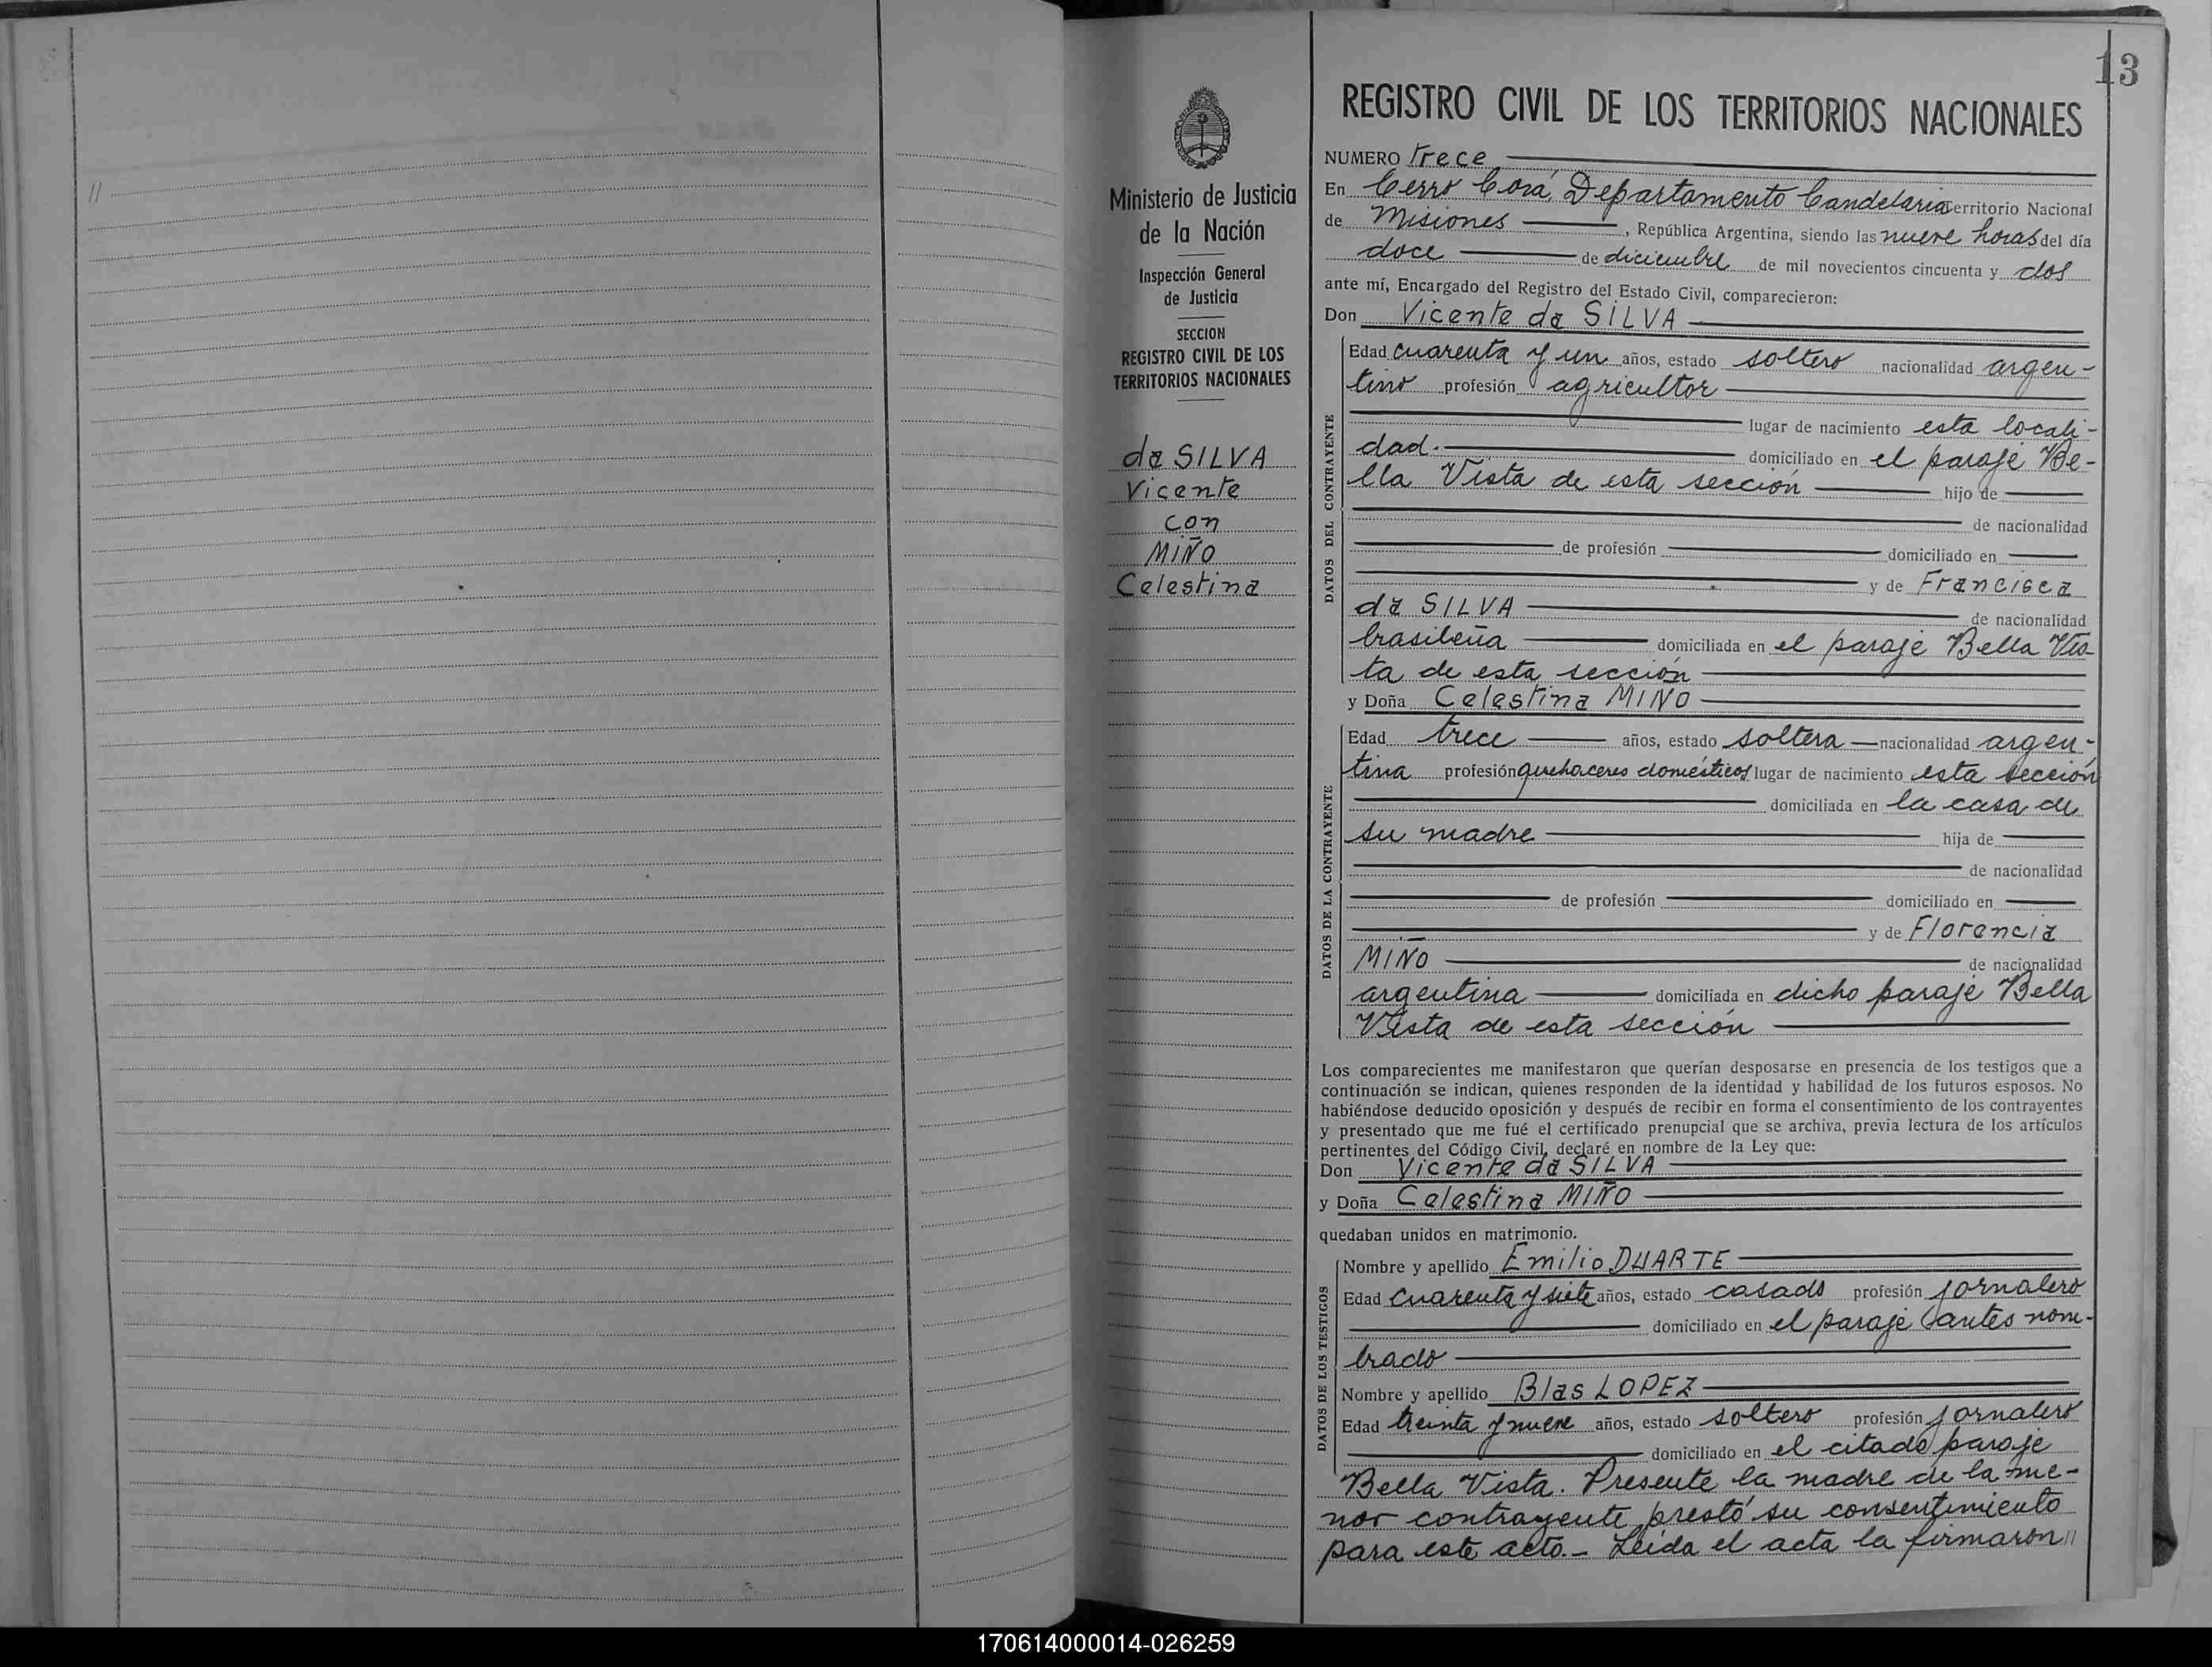 //
Ministerio de Justicia
de la Nación
Inspección General
de Justicia
SECCION
REGISTRO CIVIL DE LOS
TERRITORIOS NACIONALES
da SILVA
Vicente
con
MIÑO
Celestina
13
REGISTRO CIVIL DE LOS TERRITORIOS NACIONALES
NUMERO trece
En Cerro Corá, Departamento Candelaria Territorio Nacional
de Misiones, República Argentina, siendo las nueve horas del día
doce de diciembre de mil novecientos cincuenta y dos
ante mí, Encargado del Registro del Estado Civil, comparecieron:
Don Vicente da SILVA
DATOS DEL CONTRAYENTE
Edad cuarenta y un años, estado soltero nacionalidad argen-
tino profesión agricultor
lugar de nacimiento esta locali-
dad. domiciliado en el paraje Be-
lla Vista de esta sección hijo de
de nacionalidad
de profesión domiciliado en
y de Francisca
da SILVA de nacionalidad
brasileña domiciliada en el paraje Bella Vis-
ta de esta sección
y Doña Celestina MIÑO
DATOS DE LA CONTRAYENTE
Edad trece años, estado soltera nacionalidad argen-
tina profesión quehaceres domésticos lugar de nacimiento esta sección
domiciliada en la casa de
su madre hija de
de nacionalidad
de profesión domiciliado en
y de Florencia
MIÑO de nacionalidad
argentina domiciliada en dicho paraje Bella
Vista de esta sección
Los comparecientes me manifestaron que querían desposarse en presencia de los testigos que a
continuación se indican, quienes responden de la identidad y habilidad de los futuros esposos. No
habiéndose deducido oposición y después de recibir en forma el consentimiento de los contrayentes
y presentado que me fué el certificado prenupcial que se archiva, previa lectura de los artículos
pertinentes del Código Civil, declaré en nombre de la Ley que:
Don Vicente da SILVA
y Doña Celestina MIÑO
quedaban unidos en matrimonio.
DATOS DE LOS TESTIGOS
Nombre y apellido Emilio DUARTE
Edad cuarenta y siete años, estado casado profesión jornalero
domiciliado en el paraje antes nom-
brado
Nombre y apellido Blas LOPEZ
Edad treinta y nueve años, estado soltero profesión jornalero
domiciliado en el citado paraje
Bella Vista. Presente la madre de la me-
nor contrayente prestó su consentimiento
para este acto- Leida el acta la firmaron//
170614000014-026259